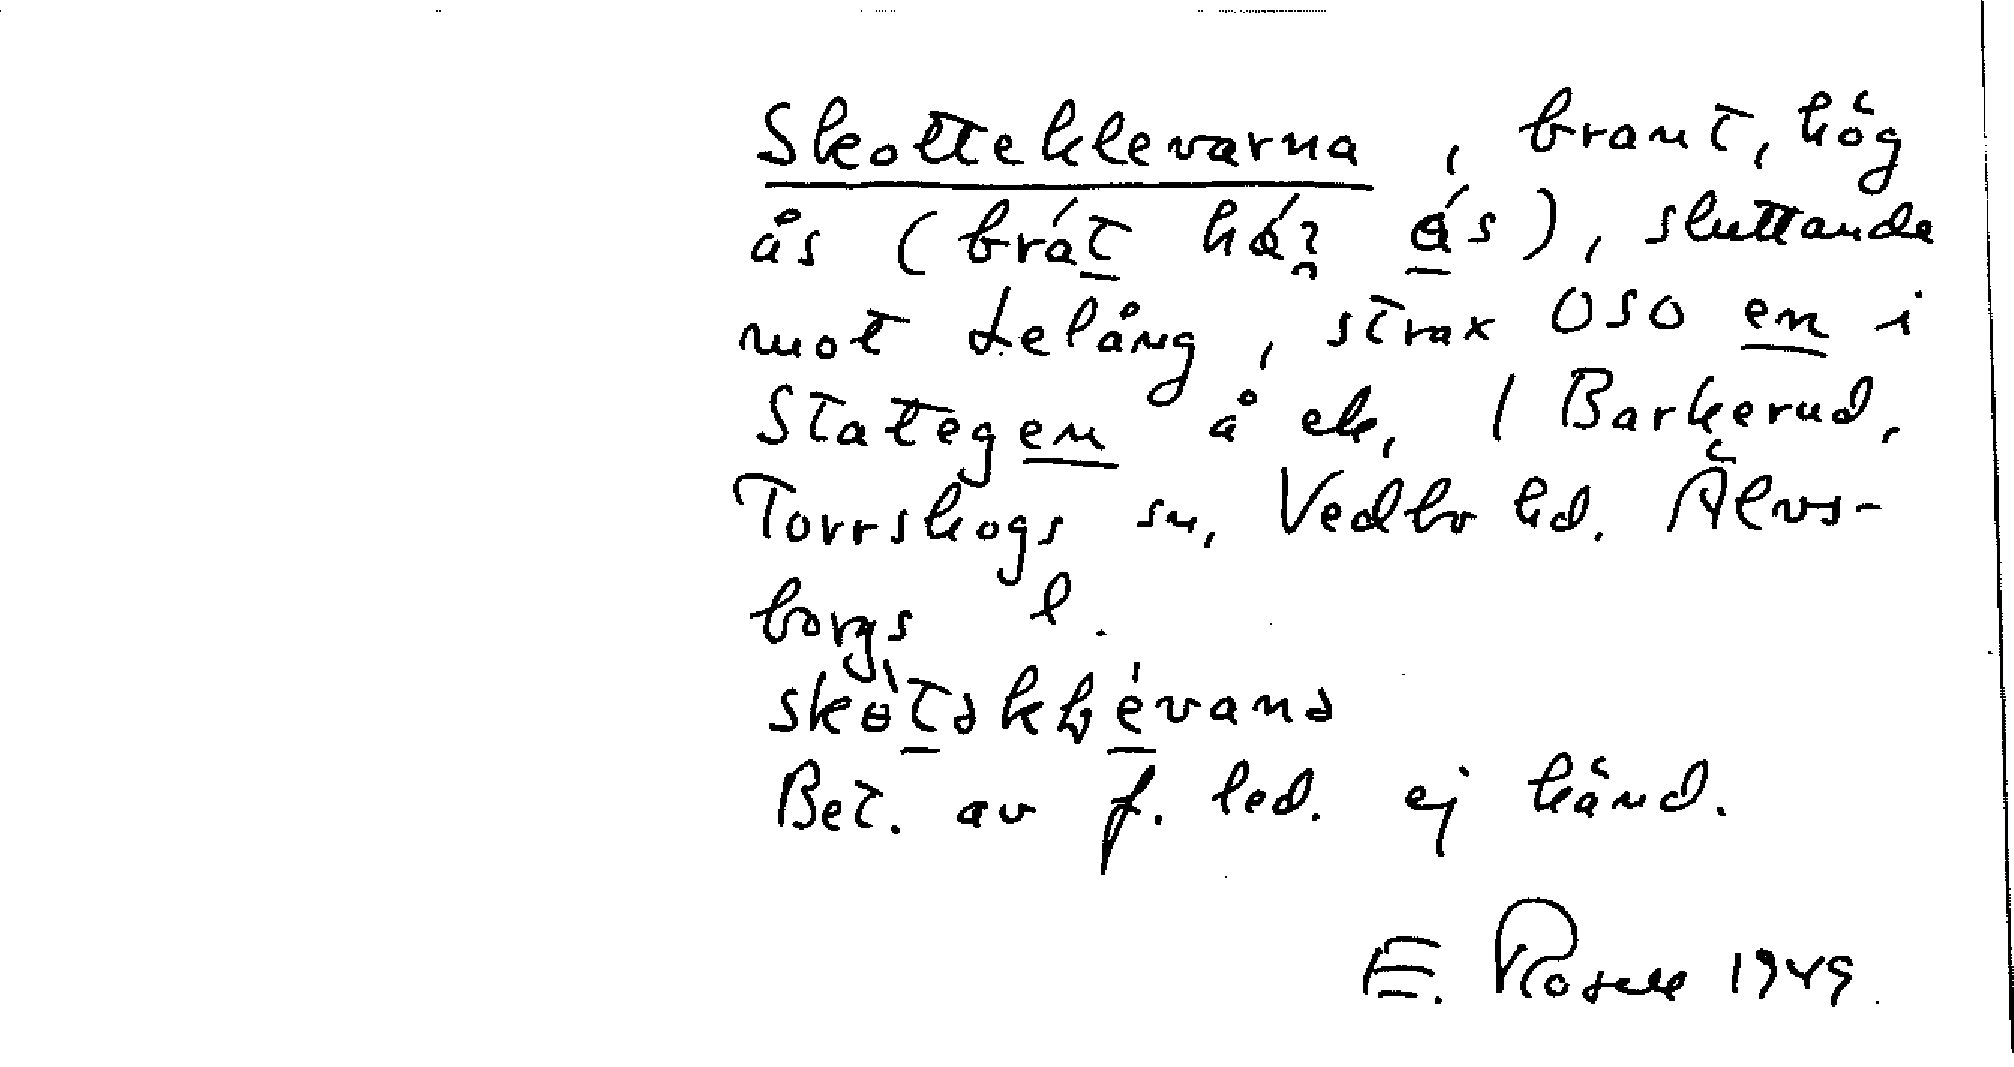 Skotteklevarna, brant, hög
ås (brát há͢ʒ ǿs), sluttande
mot Lelång, strax OSO en i
Stategen å ek, / Barkerud,
Torrskogs sn, Vedbo hd. Älvs-
borgs l.
Bet. av f. led. ej känd.
E. Rosell 1949.